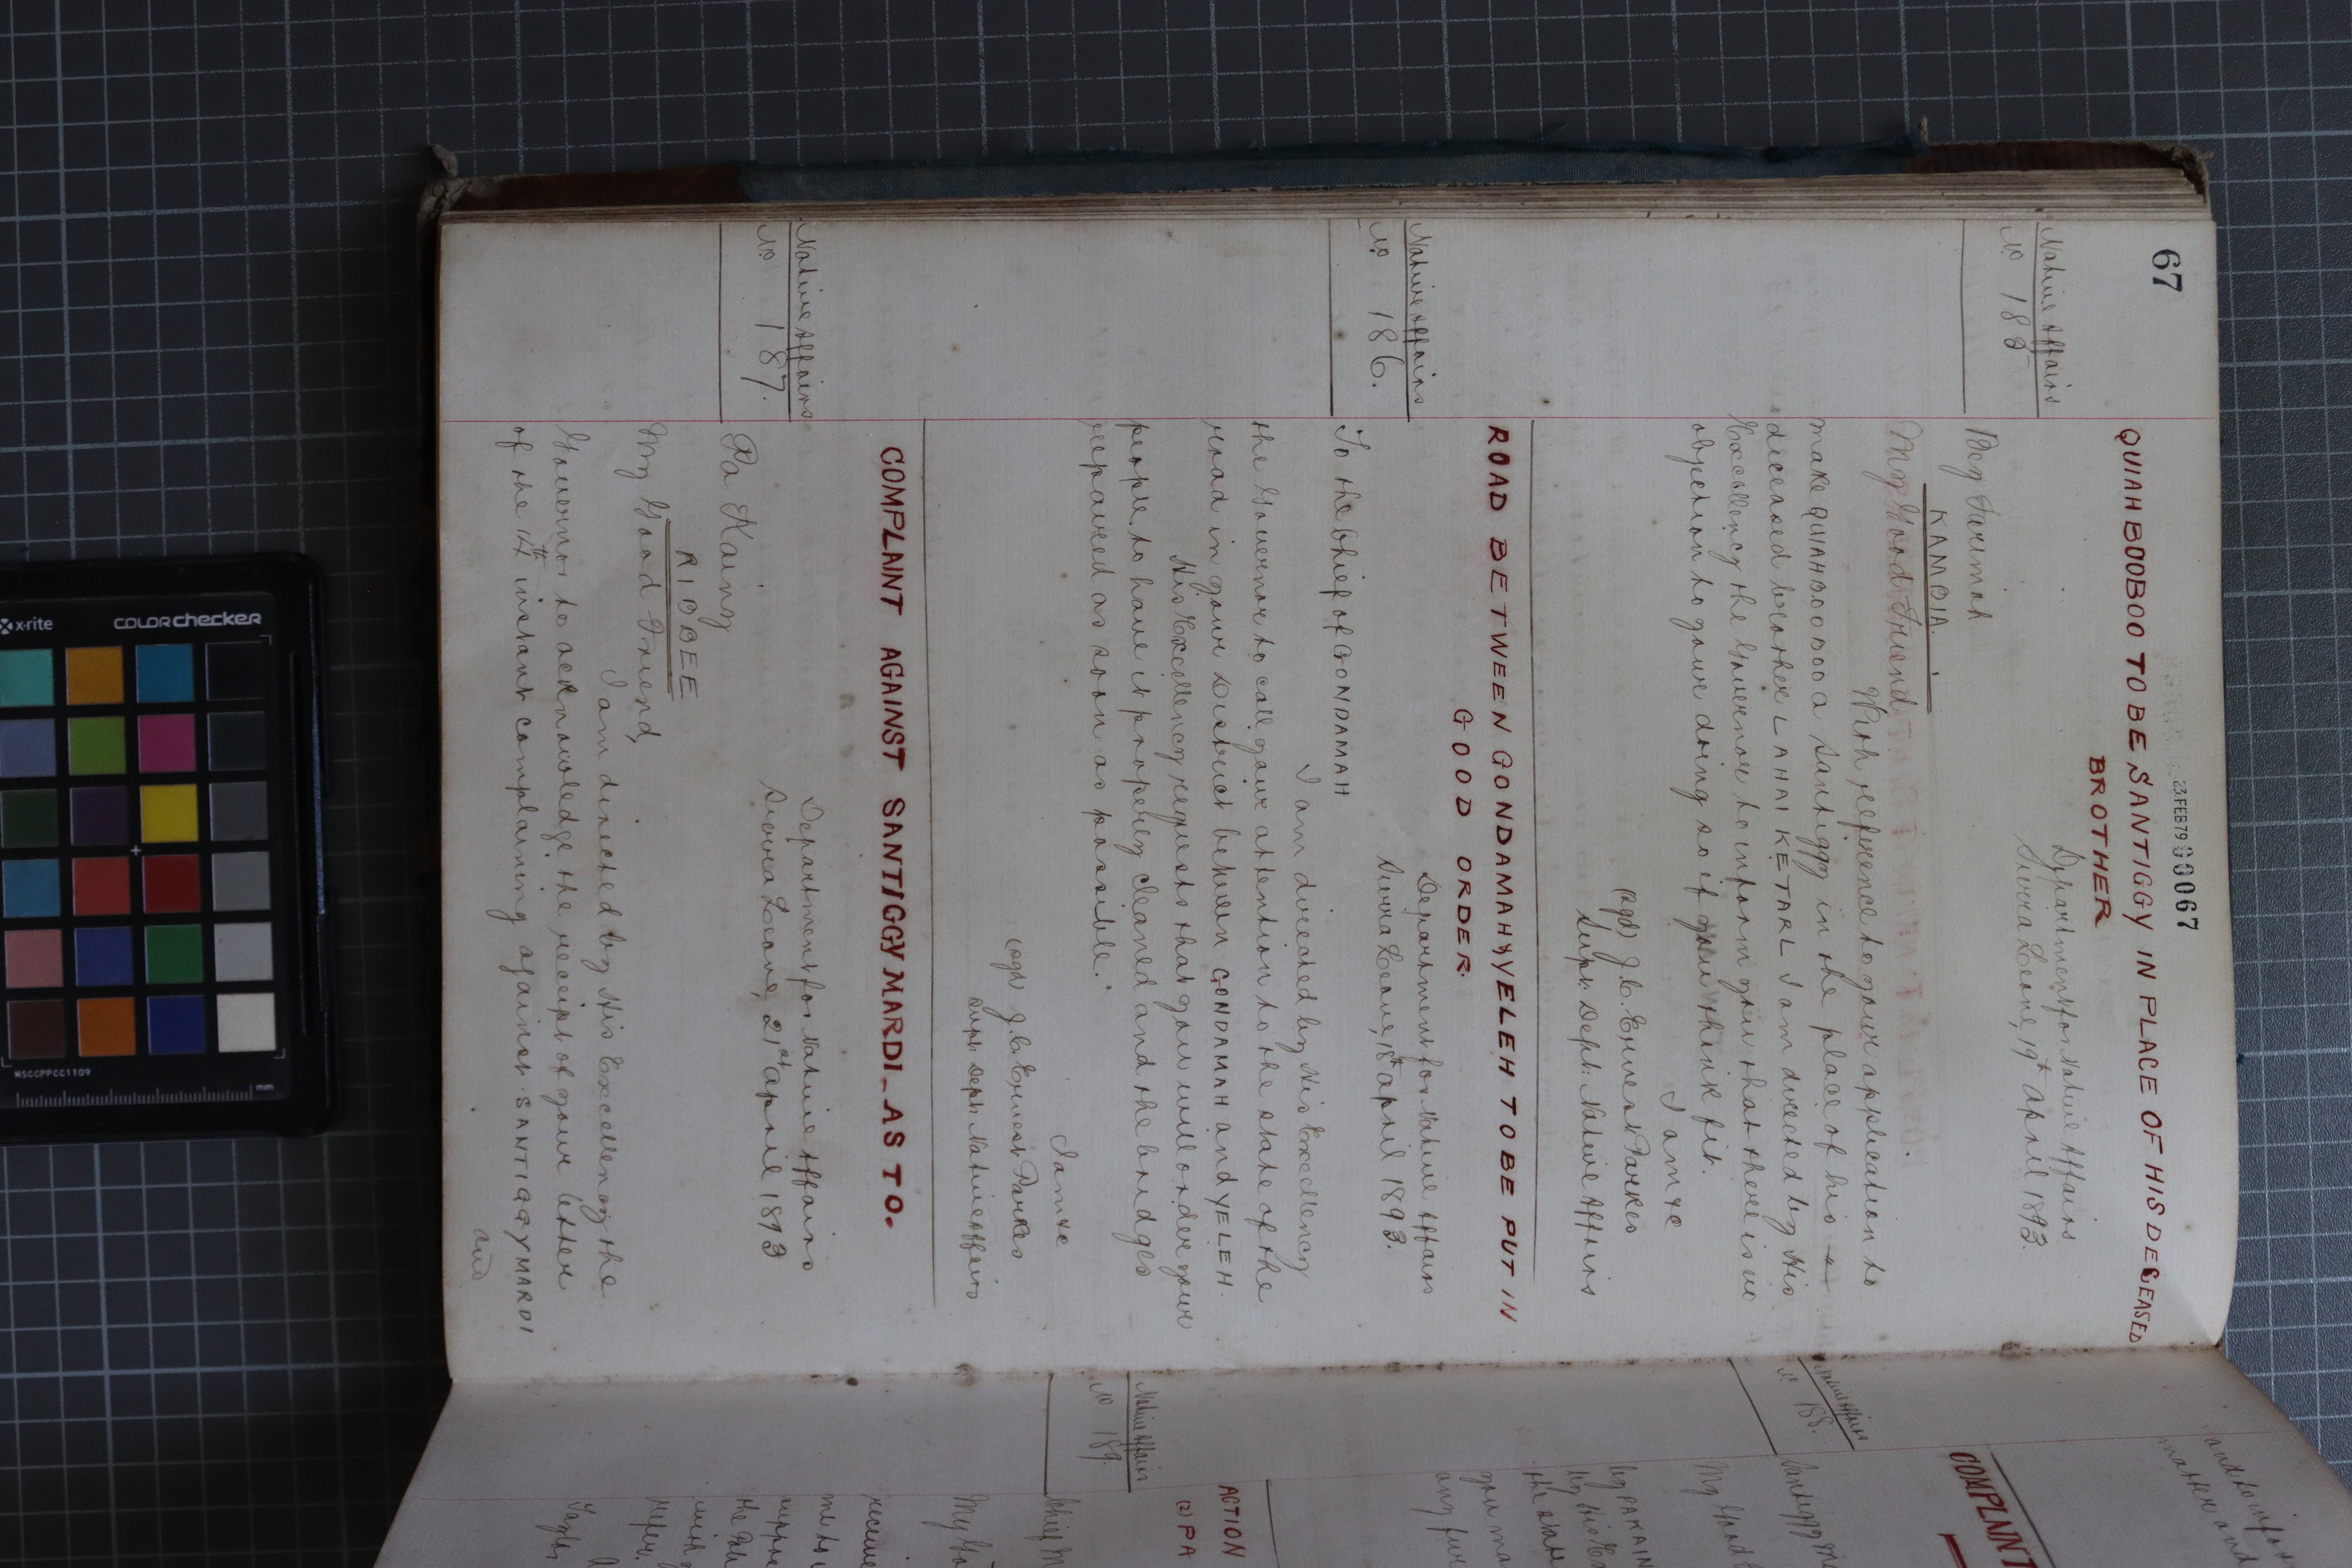 67
23 FEB 79 00067
QUIAHBOOBOO TO BE SANTIGGY IN PLACE OF HIS DECEASED
BROTHER
Native Affairs
No 185
Department for Native Affairs
Sierra Leone, 19th April 1893.
Bey Farimah
KAMBIA.
My Good Friend
With reference to your application to
make QUIAHBOOBOO a Santiggy in the place of his
deceased brother LAHAI KETARL I am directed by His
Excellency the Governor to inform you that there is no
objection to your doing so if you think fit.
I am &c
(sgd) J. C. Ernest Parkes
Supt: Dept: Native Affairs
ROAD BETWEEN GONDAMAH & YELEH TO BE PUT IN
GOOD ORDER.
Native Affairs
No 186.
Department for Native Affairs
Sierra Leone, 18th April 1893.
To the Chief of GONDAMAH
I am directed by His Excellency
the Governor to call your attention to the state of the
road in your District between GONDAMAH and YELEH.
His Excellency requests that you will order your
people to have it properly cleaned and the bridges
repaired as soon as possible.
I am &c
(sgd) J. C. Ernest Parkes
Supt: Dept: Native Affairs
COMPLAINT AGAINST SANTIGGY MARDI_AS TO.
Native Affairs
No 187.
Department for Native Affairs
Sierra Leone, 21st April 1893
Pa Kaing
RIBBEE
My Good Friend,
I am directed by His Excellency the
Governor to acknowledge the receipt of your letter
of the 14th instant complaining against SANTIGGY MARDI
and
and to infor
matter and
COMPLAINT
Native Affairs
No 188.
Santiggy M
My Good F
by PA KAIN
by His Ex
the state
you ma
any fur
ACTION
(2) PA
Native Affairs
No 189.
Chief M
My Go
me to
x-rite
colorchecker
MSCCPPCC1109
mm